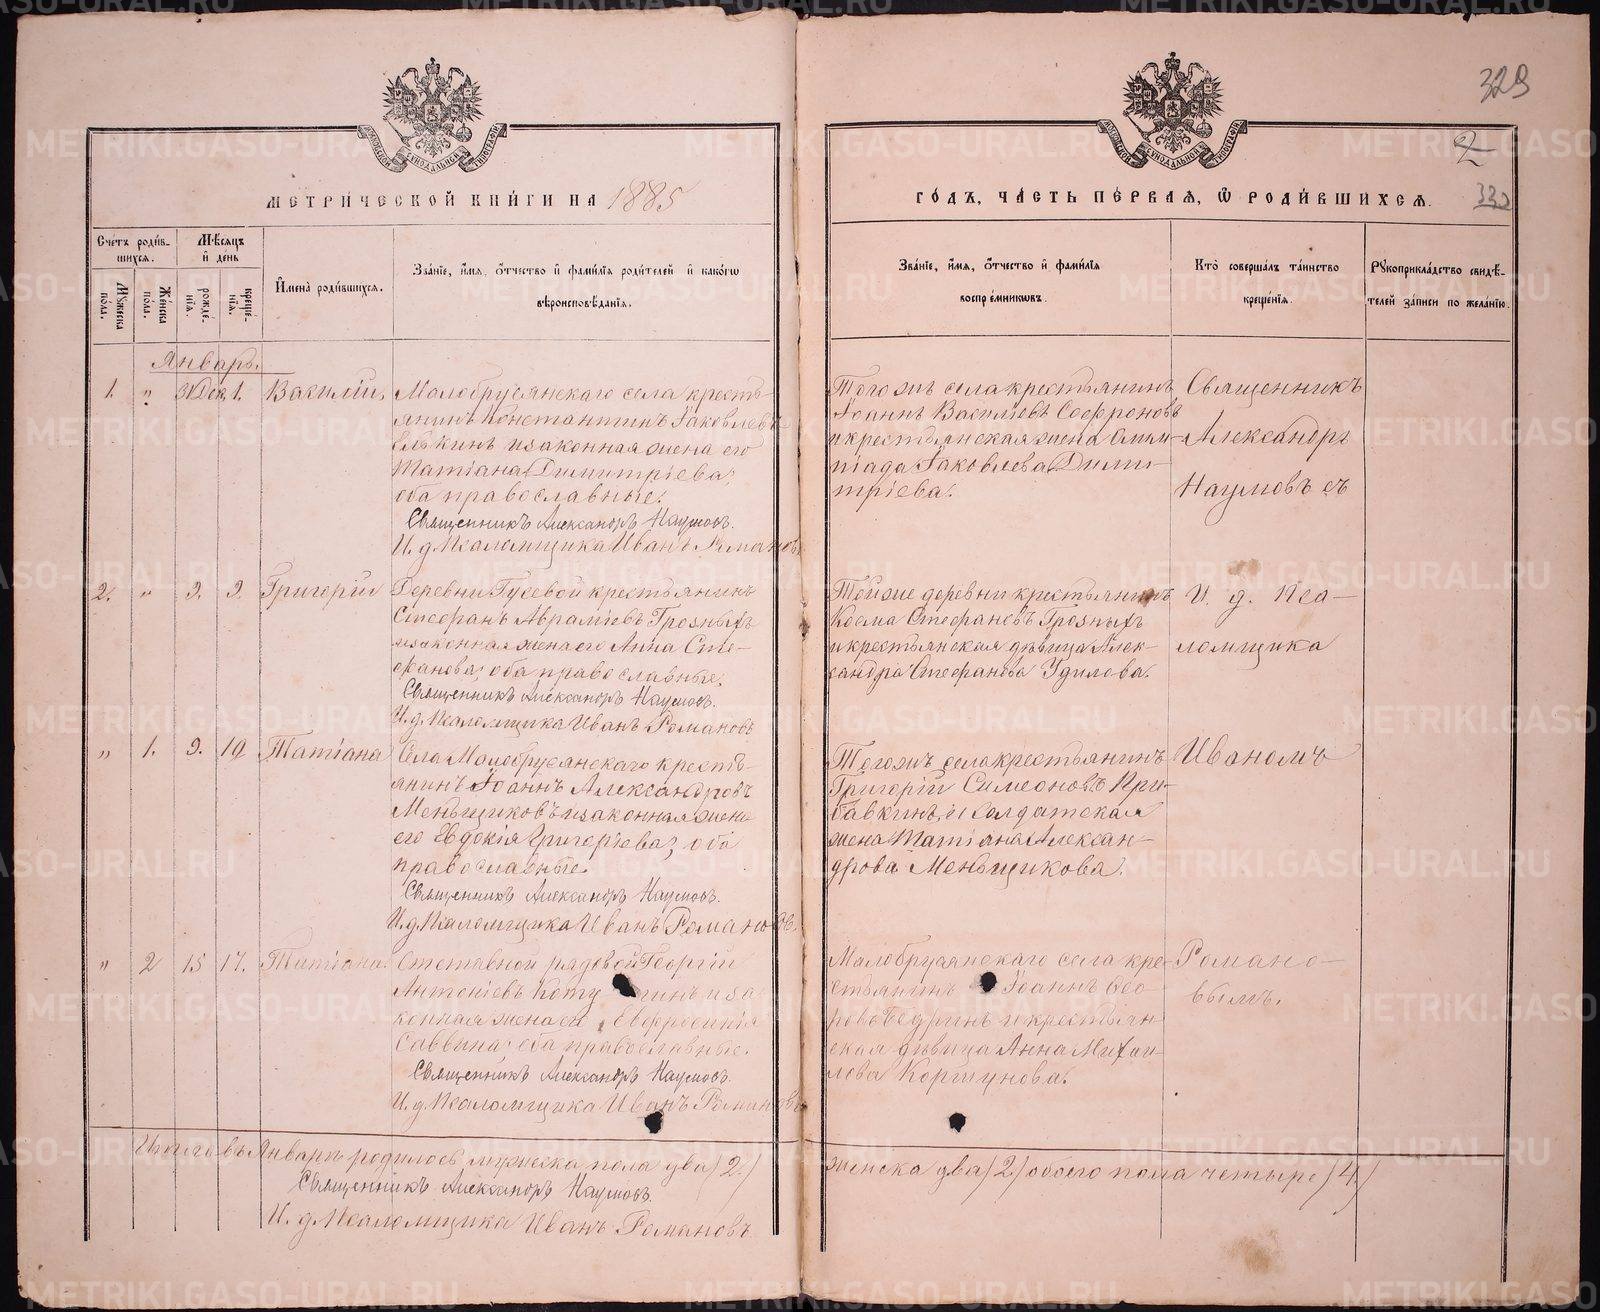 323
2
332
МОСКОВСКОЙ СѴНОДАЛЬНОЙ ТИПОГРАФІИ
МОСКОВСКОЙ СѴНОДАЛЬНОЙ ТИПОГРАФІИ
МЕТРИЧЕСКОЙ КНИГИ НА 1885
ГОДЪ, ЧАСТЬ ПЕРВАЯ, Ѿ РОДИВШИХСЯ.
Счетъ родив-
шихся.
Мѣсяцъ
и день
Мужеска пола.
Женска пола.
рожде-
нія.
креще-
нія.
Имена родившихся.
Званіе, имя, отчество и фамилія родителей и какогѡ
вѣроисповѣданія.
Званіе, имя, отчество и фамилія
воспріемникѡвъ.
Кто совершалъ таинство
крещенія.
Рукоприкладство свидѣ-
телей записи по желанію.
Январь.
1. " 31 Дек. 1. Василій, Малобрусянскаго села кресть-
янинъ Константинъ Іаковлевъ
Елькинъ и законная жена его
Татіана Димитріева;
оба православные.
Священникъ Александръ Наумовъ.
И. д. Псаломщика Иванъ Романовъ
Того же села крестьянинъ
Іоаннъ Василіевъ Софроновъ
и крестьянская жена Олим-
піада Іаковлева Дими-
тріева.
Священникъ
Александръ
Наумовъ съ
2. " 9. 9. Григорій Деревни Гусевой крестьянинъ
Стефанъ Авраміевъ Грозныхъ
и законная жена его Анна Сте-
фанова; оба православные.
Священникъ Александръ Наумовъ.
И. д. Псаломщика Иванъ Романовъ
Той же деревни крестьянинъ
Косма Стефановъ Грозныхъ
и крестьянская дѣвица Алек-
сандра Стефанова Удилова.
И. д. Пса-
ломщика
" 1. 9. 10 Татіана Села Малобрусянскаго кресть-
янинъ Іоаннъ Александровъ
Меньщиковъ и законная жена
его Евдокія Григоріева; оба
православные.
Священникъ Александръ Наумовъ.
И. д. Псаломщика Иванъ Романовъ.
Того же села крестьянинъ
Григорій Симеоновъ При-
бавкинъ, и солдатская
жена Татіана Алексан-
дрова Меньщикова.
Иваномъ
" 2 15 17. Татіана. Отставной рядовой Георгій
Антоніевъ и за
конная жена его Евфросинія
Саввина; оба православные.
Священникъ Александръ Наумовъ.
И. д. Псаломщика Иванъ Романовъ
Малобрусянскаго села кре-
стьянинъ Іоаннъ Ѳео-
и крестьян
ская дѣвица Анна Михаи-
лова Коршунова.
Романо-
вымъ.
Итого въ Январѣ родилось мужеска пола два (2.)
женска два (2) обоего пола четыре (4.)
Священникъ Александръ Наумовъ.
И. д. Псаломщика Иванъ Романовъ